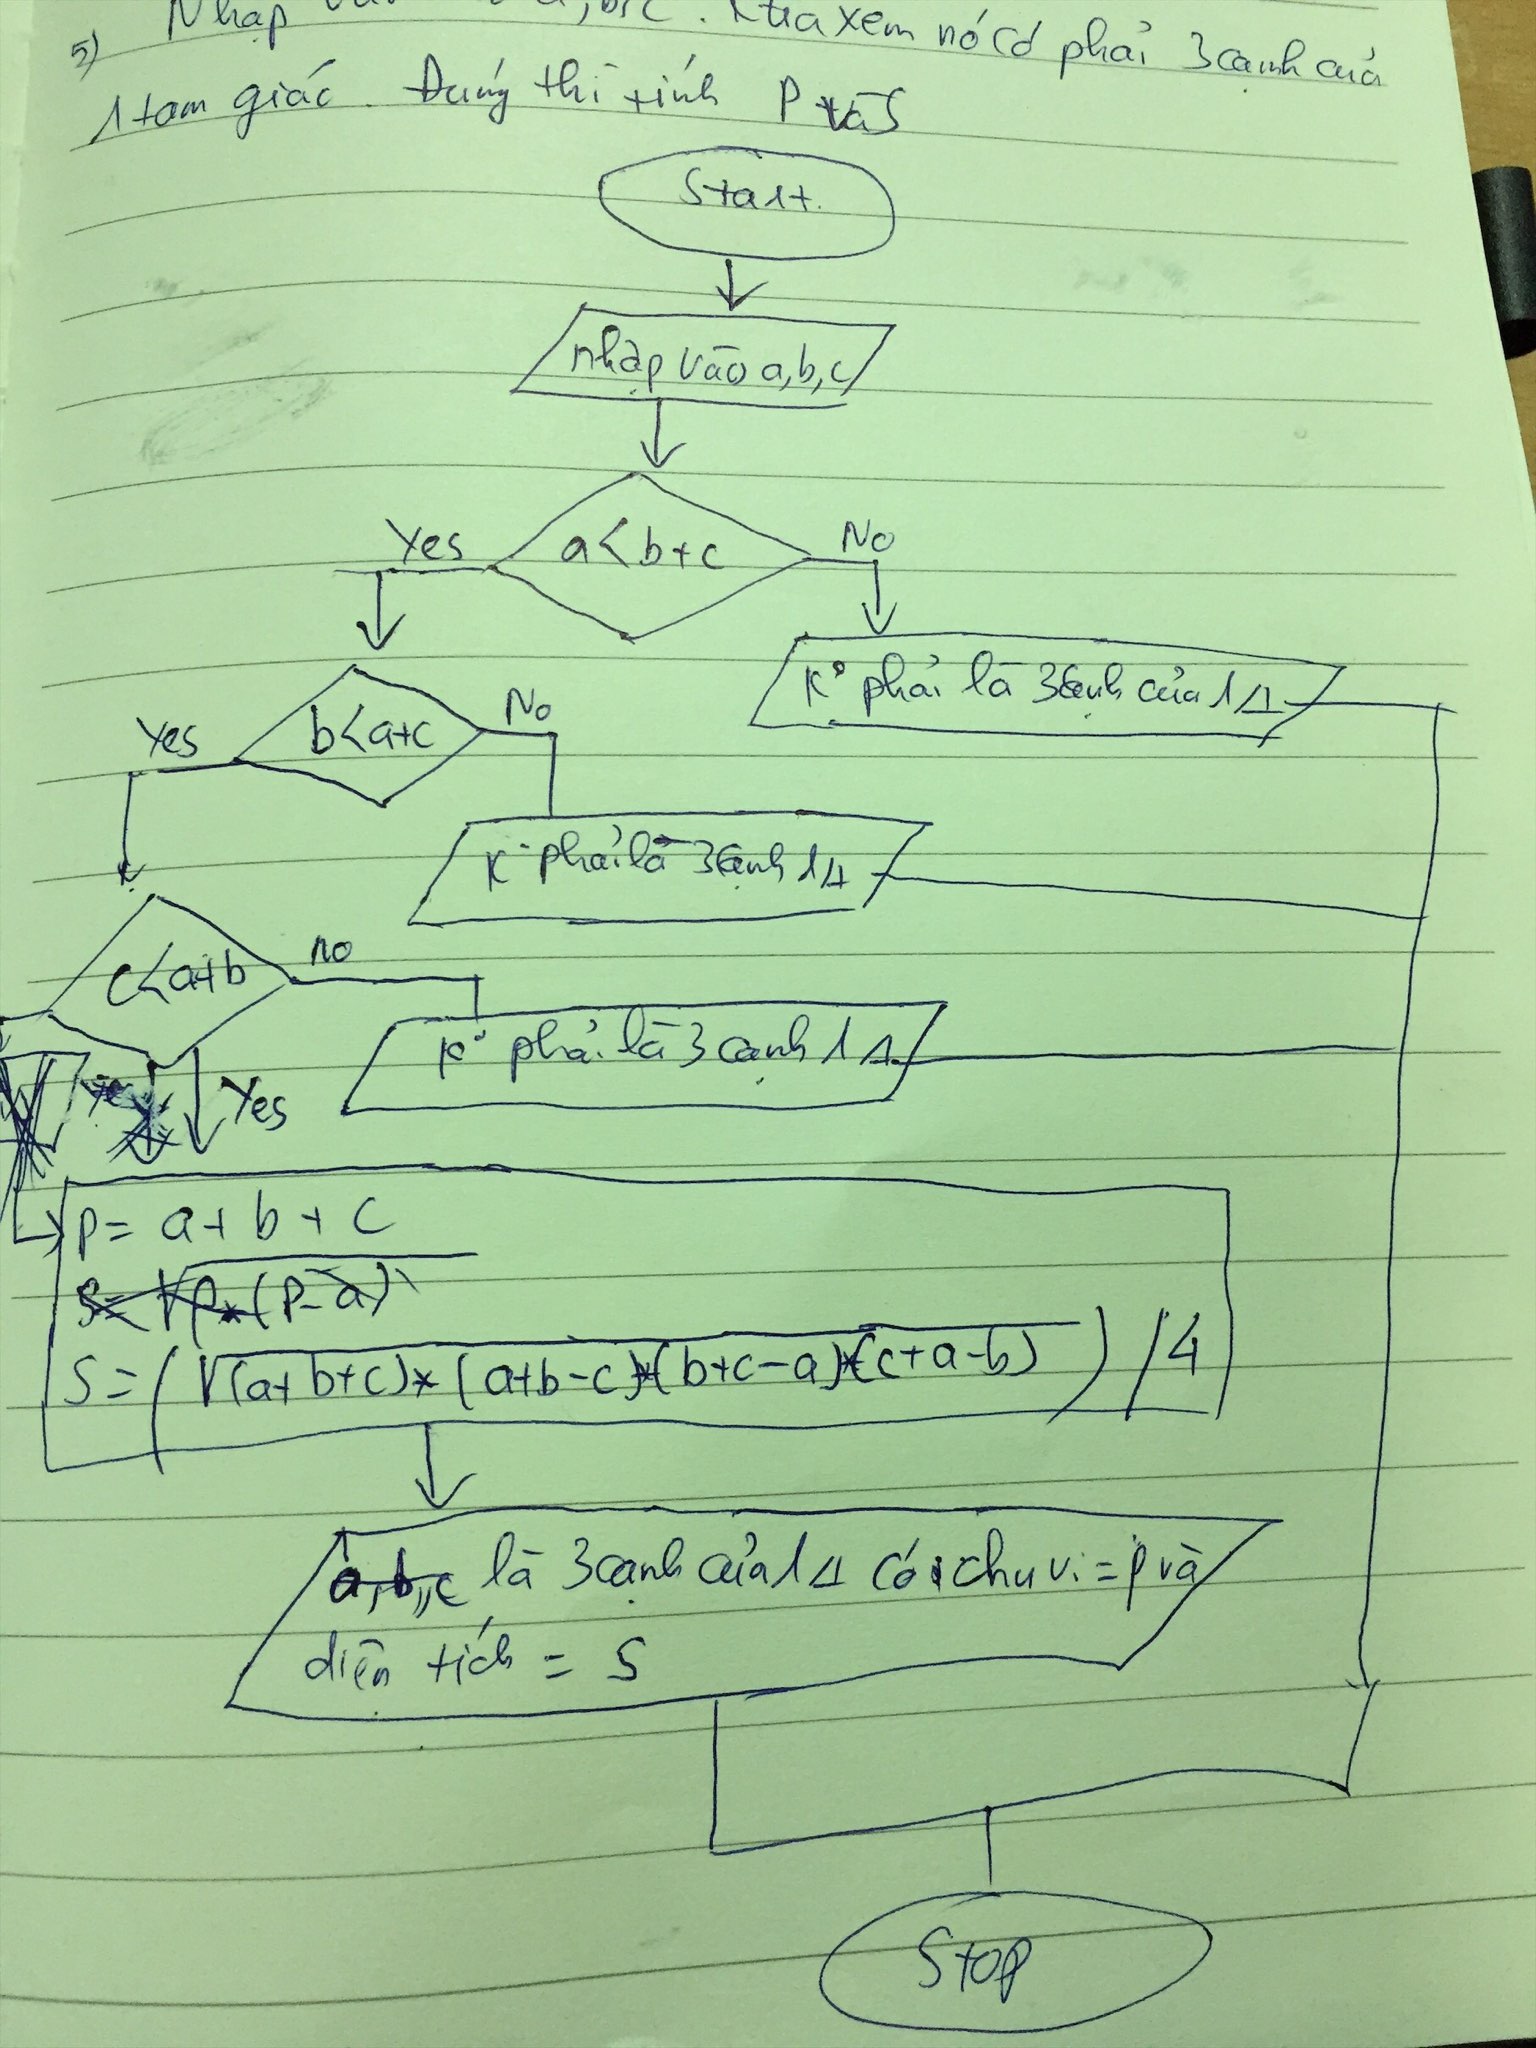 5) Nhập vào a,b,c. Ktra xem nó có phải 3 cạnh của
1 tam giác. Đúng thì tính P và S
Start
nhập vào a,b,c
a<b+c
Yes
No
K° phải là 3 cạnh của 1 Δ
b<a+c
Yes
No
K° phải là 3 cạnh 1 Δ
c<a+b
no
K° phải là 3 cạnh 1 Δ
Yes
P= a+b+c
S= √P*(P-a)
S=(√(a+b+c)*(a+b-c)*(b+c-a)*(c+a-b))/4
a,b,c là 3 cạnh của 1 Δ có chu vi = P và
diện tích = S
Stop